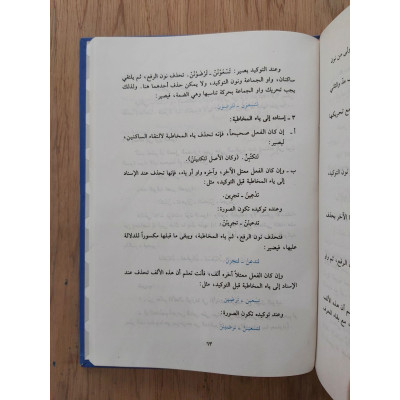 وعند التوكيد يصير: تَسْعَوْنَنَّ ـ تَرْضَوْنَنَّ. تحذف نون الرفع، ثم يلتقي
ساكنان، واو الجماعة ونون التوكيد، ولا يمكن حذف أحدهما هنا. ولذلك
يجب تحريك واو الجماعة بحركة تناسبها وهي الضمة، فيصير:
٣ ـ إسناده إلى ياء المخاطبة:
أ ـ إن كان الفعل صحيحاً، فإنه تحذف ياء المخاطبة لالتقاء الساكنين،
ليصير:
لتكتُبِنَّ. (وكان الأصل لتكتبينن).
ب ـ وإن كان الفعل معتل الآخر، وآخره واو أو ياء، فإنها تحذف عند الإسناد
إلى ياء المخاطبة قبل التوكيد، مثل:
تدعين ـ تجرين.
وعند توكيده تكون الصورة:
تدعينن ـ تجرينن.
فتحذف نون الرفع، ثم ياء المخاطبة، ويبقى ما قبلها مكسوراً للدلالة
عليها، فيصير:
لتدعن ـ لتجرن
وإن كان الفعل معتلاً آخره ألف، فأنت تعلم أن هذه الألف تحذف عند
الإسناد إلى ياء المخاطبة قبل التوكيد، مثل:
تسعين ـ ترضين.
وعند توكيده تكون الصورة:
لتسعينن ـ ترضينن
٦٣